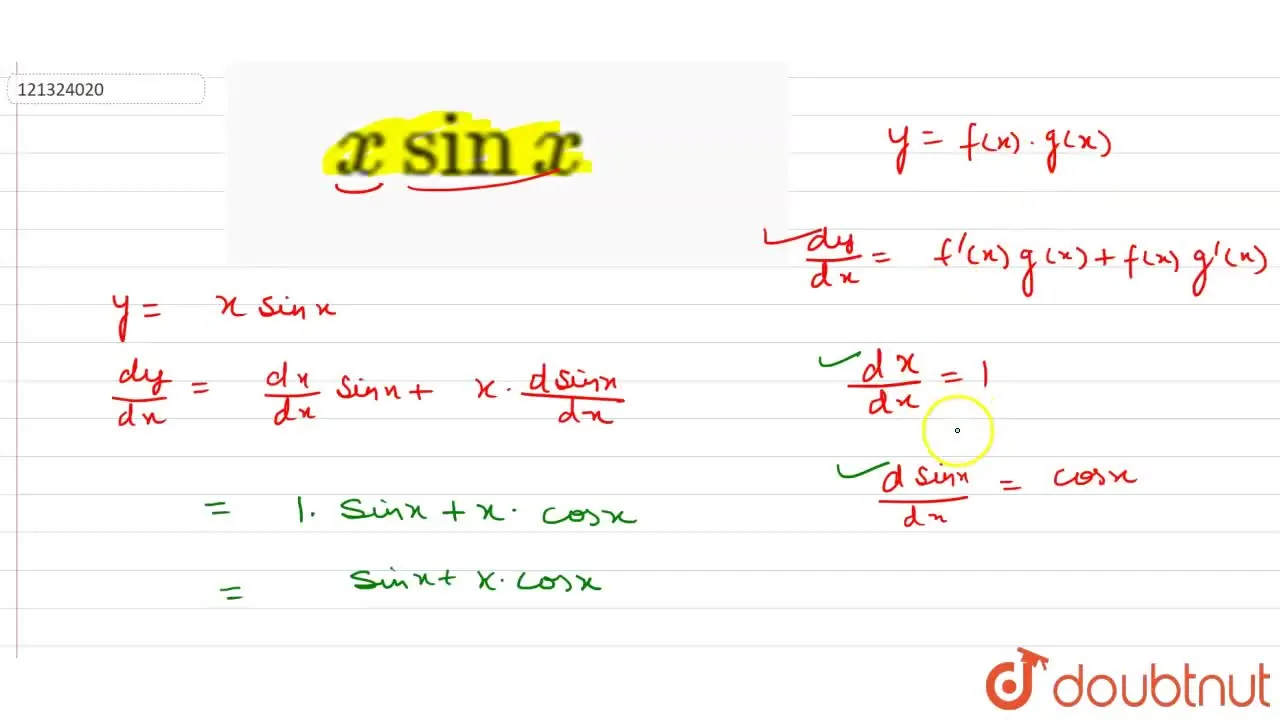 121324020
x sin x
y = f(x) · g(x)
dy/dx = f'(x) g(x) + f(x) g'(x)
y = x sinx
dy/dx = dx/dx sinx + x · d sinx/dx
dx/dx = 1
d sinx/dx = cosx
= 1. sinx + x · cosx
= sinx + x · cosx
doubtnut